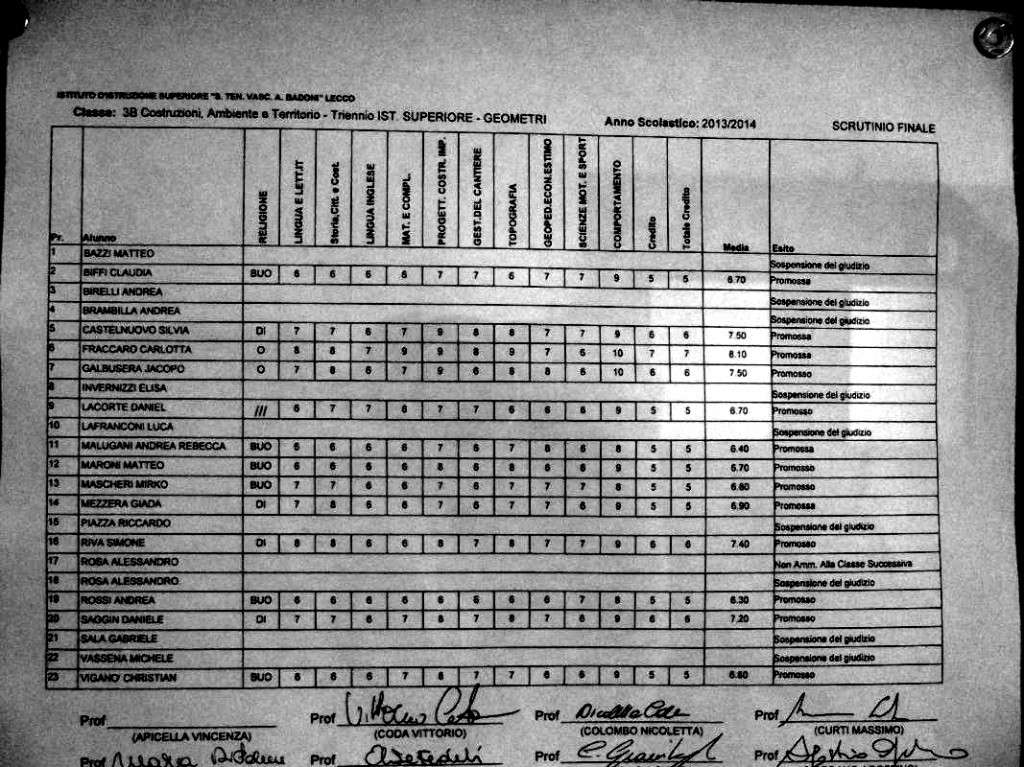 ISTITUTO D'ISTRUZIONE SUPERIORE "S. TEN. VASC. A. BADONI" LECCO
Classe: 3B Costruzioni, Ambiente e Territorio - Triennio IST. SUPERIORE - GEOMETRI Anno Scolastico: 2013/2014 SCRUTINIO FINALE
Pr. Alunno RELIGIONE LINGUA E LETT.IT Storia,Citt. e Cost. LINGUA INGLESE MAT. E COMPL. PROGETT. COSTR. IMP. GEST.DEL CANTIERE TOPOGRAFIA GEOPED.ECON.ESTIMO SCIENZE MOT. E SPORT COMPORTAMENTO Credito Totale Credito Media Esito
1 BAZZI MATTEO Sospensione del giudizio
2 BIFFI CLAUDIA BUO 6 6 6 6 7 7 6 7 7 9 5 5 6.70 Promossa
3 BIRELLI ANDREA Sospensione del giudizio
4 BRAMBILLA ANDREA Sospensione del giudizio
5 CASTELNUOVO SILVIA DI 7 7 6 7 9 8 8 7 7 9 6 6 7.50 Promossa
6 FRACCARO CARLOTTA O 8 8 7 9 9 8 9 7 6 10 7 7 8.10 Promossa
7 GALBUSERA JACOPO O 7 8 6 7 9 6 8 8 6 10 6 6 7.50 Promosso
8 INVERNIZZI ELISA Sospensione del giudizio
9 LACORTE DANIEL /// 6 7 7 6 7 7 6 6 6 9 5 5 6.70 Promosso
10 LAFRANCONI LUCA Sospensione del giudizio
11 MALUGANI ANDREA REBECCA BUO 6 6 6 6 7 6 7 6 6 8 5 5 6.40 Promossa
12 MARONI MATTEO BUO 6 6 6 6 8 6 8 6 6 9 5 5 6.70 Promosso
13 MASCHERI MIRKO BUO 7 7 6 6 7 6 7 7 7 8 5 5 6.80 Promosso
14 MEZZERA GIADA DI 7 8 6 6 7 6 7 7 6 9 5 5 6.90 Promossa
15 PIAZZA RICCARDO Sospensione del giudizio
16 RIVA SIMONE DI 8 8 6 6 8 7 8 7 7 9 6 6 7.40 Promosso
17 ROSA ALESSANDRO Non Amm. Alla Classe Successiva
18 ROSA ALESSANDRO Sospensione del giudizio
19 ROSSI ANDREA BUO 6 6 6 6 6 6 6 6 7 8 5 5 6.30 Promosso
20 SAGGIN DANIELE DI 7 7 6 7 8 7 8 7 6 9 6 6 7.20 Promosso
21 SALA GABRIELE Sospensione del giudizio
22 VASSENA MICHELE Sospensione del giudizio
23 VIGANO' CHRISTIAN BUO 6 6 6 7 8 7 7 6 6 9 5 5 6.80 Promosso
Prof Prof Prof Prof
(APICELLA VINCENZA) (CODA VITTORIO) (COLOMBO NICOLETTA) (CURTI MASSIMO)
Prof Prof Prof Prof